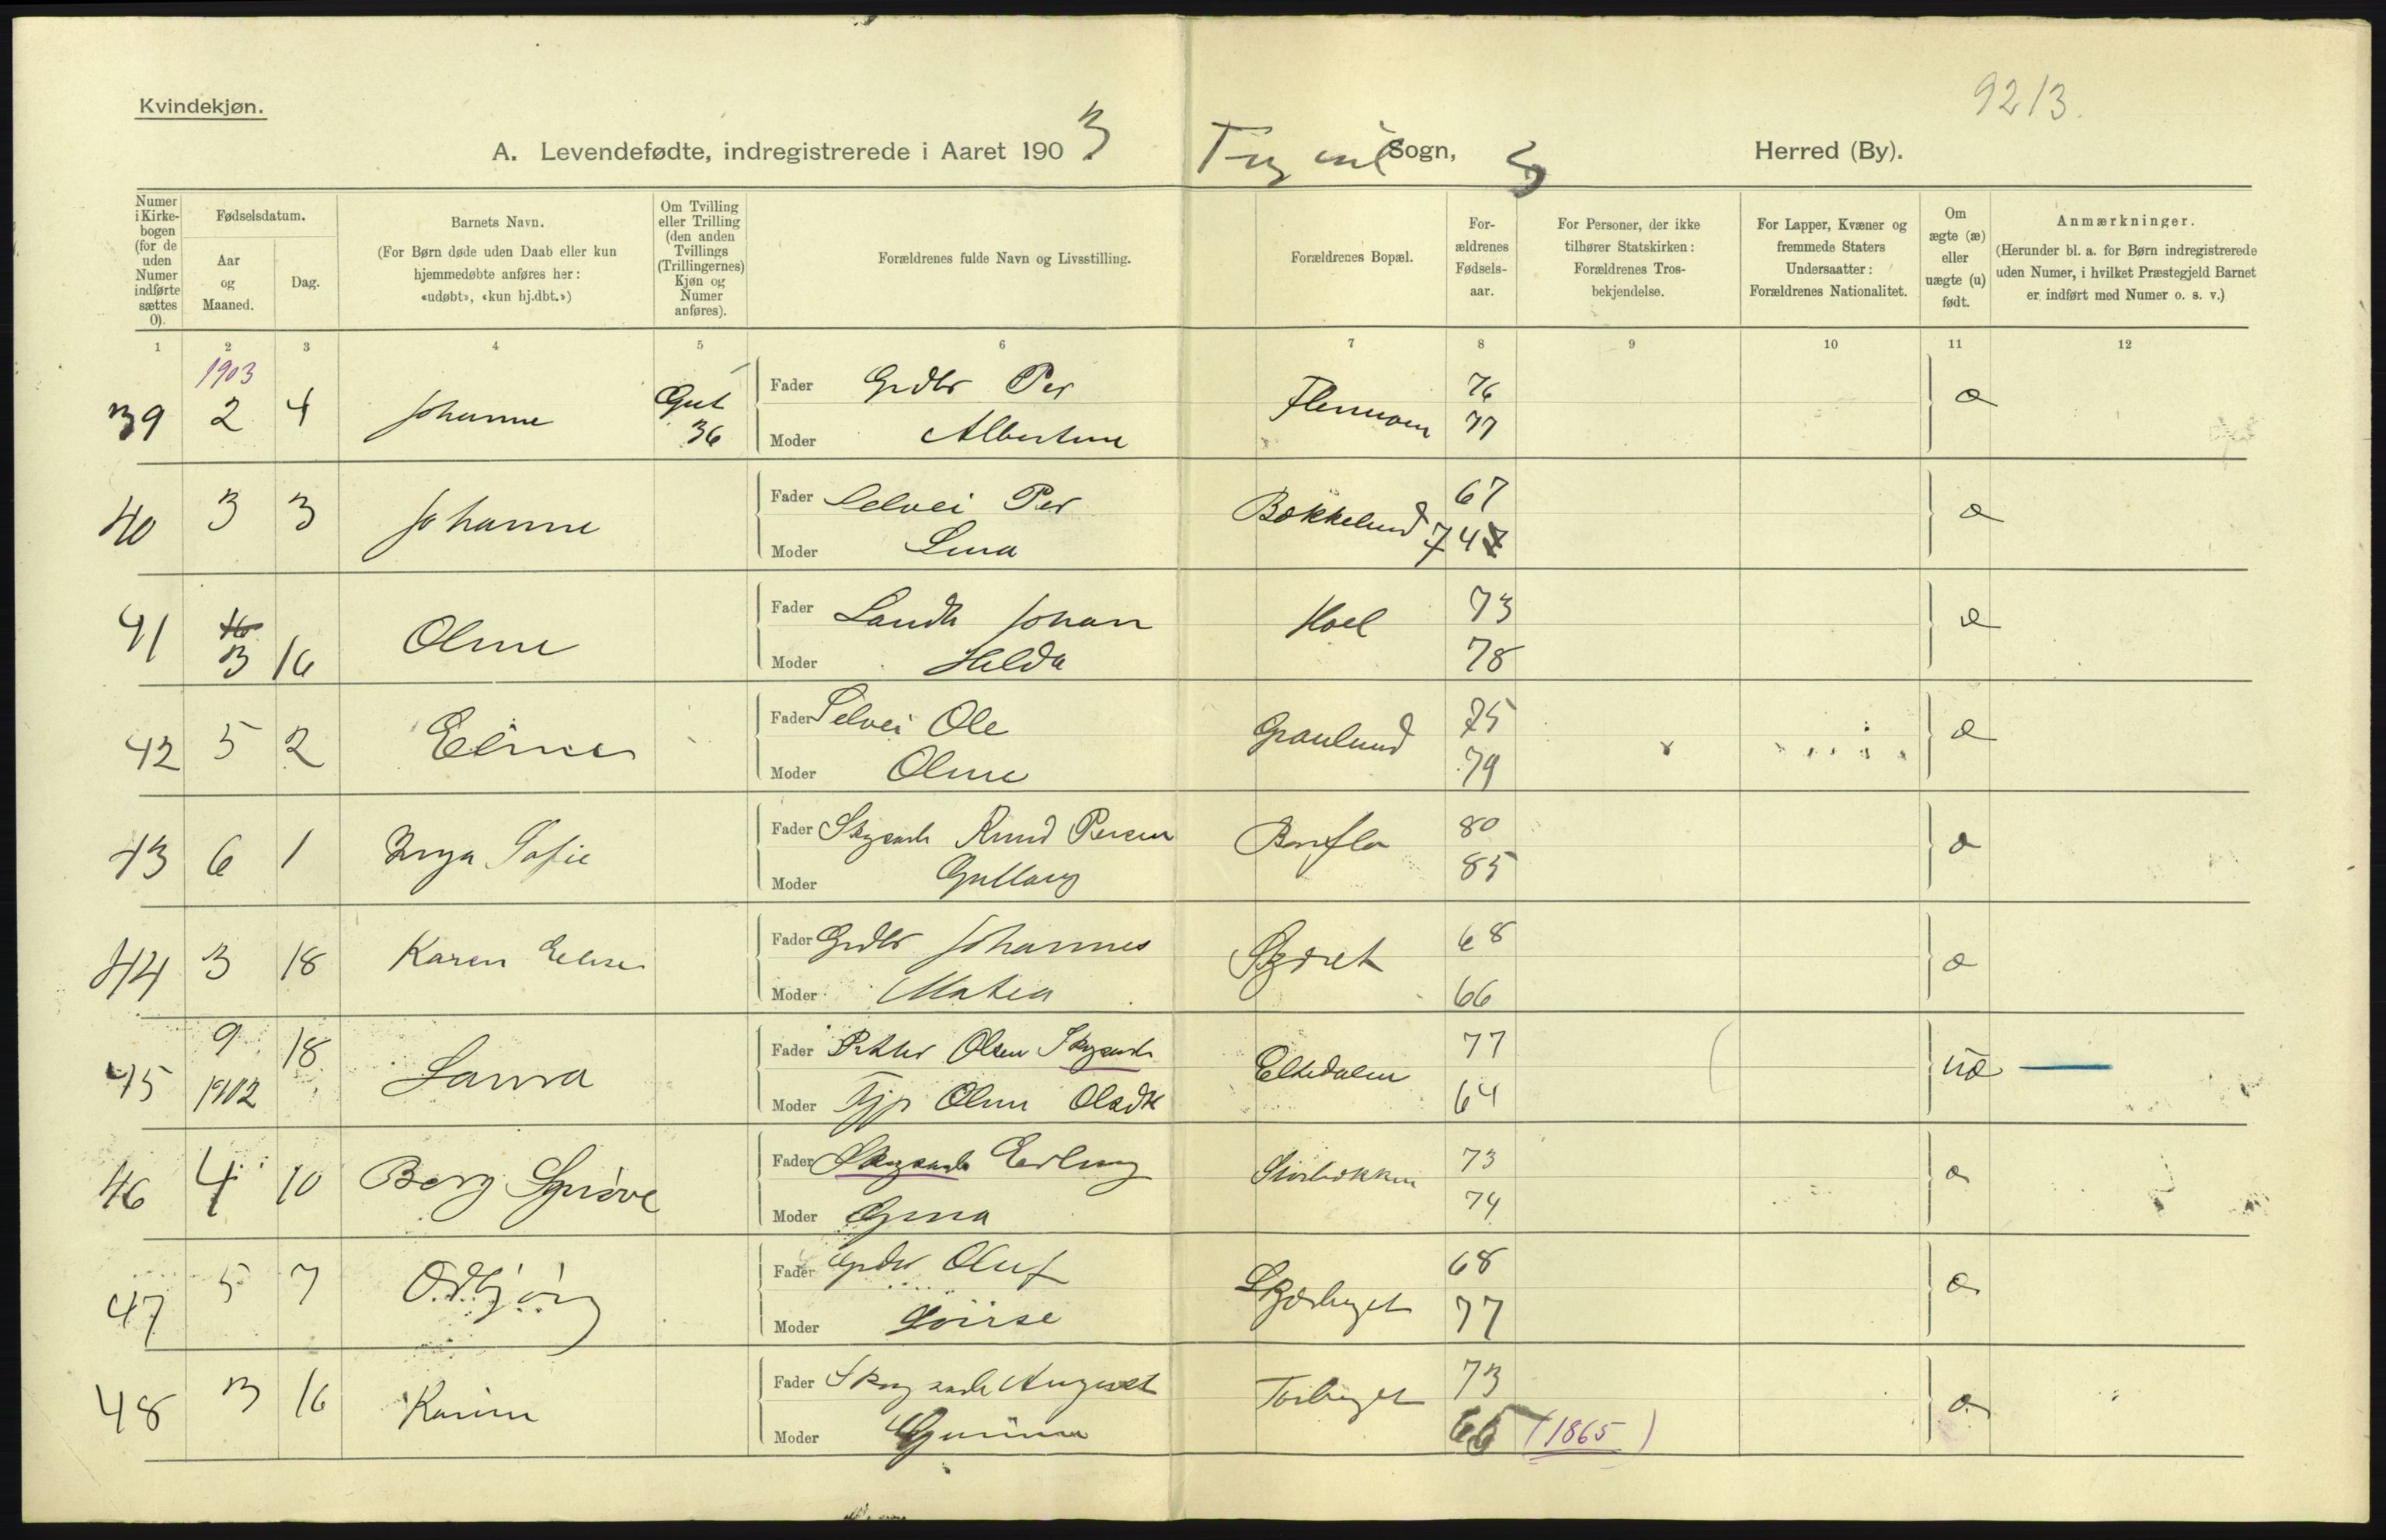 9213.
Kvindekjøn.
A. Levendefødte, indregistrerede i Aaret 1903. Trysil Sogn, Herred (By).
Numer i Kirkebogen (for de uden Numer indførte sættes 0).
Fødselsdatum.
Aar og Maaned.
Dag.
Barnets Navn.
(For Børn døde uden Daab eller kun hjemmedøbte anføres her: «udøbt», «kun hj.dbt.»)
Om Tvilling eller Trilling (den anden Tvillings (Trillingernes) Kjøn og Numer anføres).
Forældrenes fulde Navn og Livsstilling.
Forældrenes Bopæl.
Forældrenes Fødselsaar.
For Personer, der ikke tilhører Statskirken: Forældrenes Trosbekjendelse.
For Lapper, Kvæner og fremmede Staters Undersaatter: Forældrenes Nationalitet.
Om ægte (æ) eller uægte (u) født.
Anmærkninger.
(Herunder bl. a. for Børn indregistrerede uden Numer, i hvilket Præstegjeld Barnet er indført med Numer o. s. v.)
1 2 3 4 5 6 7 8 9 10 11 12
1903
39 2 4 Johanne Gut 36 Fader Grdbr Per 76 æ
Moder Albertine 77
40 3 3 Johanne Fader Selvei Per Bækkelund 67 æ
Moder Lina 74
41 3 16 Oline Fader Landh Johan Hoel 73 æ
Moder Hilda 78
42 5 2 Eline Fader Selvei Ole Graulund 75 æ
Moder Oline 79
43 6 1 Inga Sofie Fader Skogsarb Knud Persen Bonflo 80 æ
Moder Gullaug 85
44 3 18 Karen Elise Fader Grdbr Johannes Øgdret 68 æ
Moder Matea 66
45 9 1902 18 Laura Fader Petter Olsen Skogsarb Eltedalen 77 uæ
Moder Tjp Oline Olsdt 64
46 4 10 Borg Synøve Fader Skogsarb Erling Storbækken 73 æ
Moder Gina 74
47 5 7 Odbjørg Fader Grdbr Oluf Skjærberget 68 æ
Moder Lovise 77
48 3 16 Karine Fader Skogsarb August Torberget 73 æ
Moder Gunine 65 (1865)